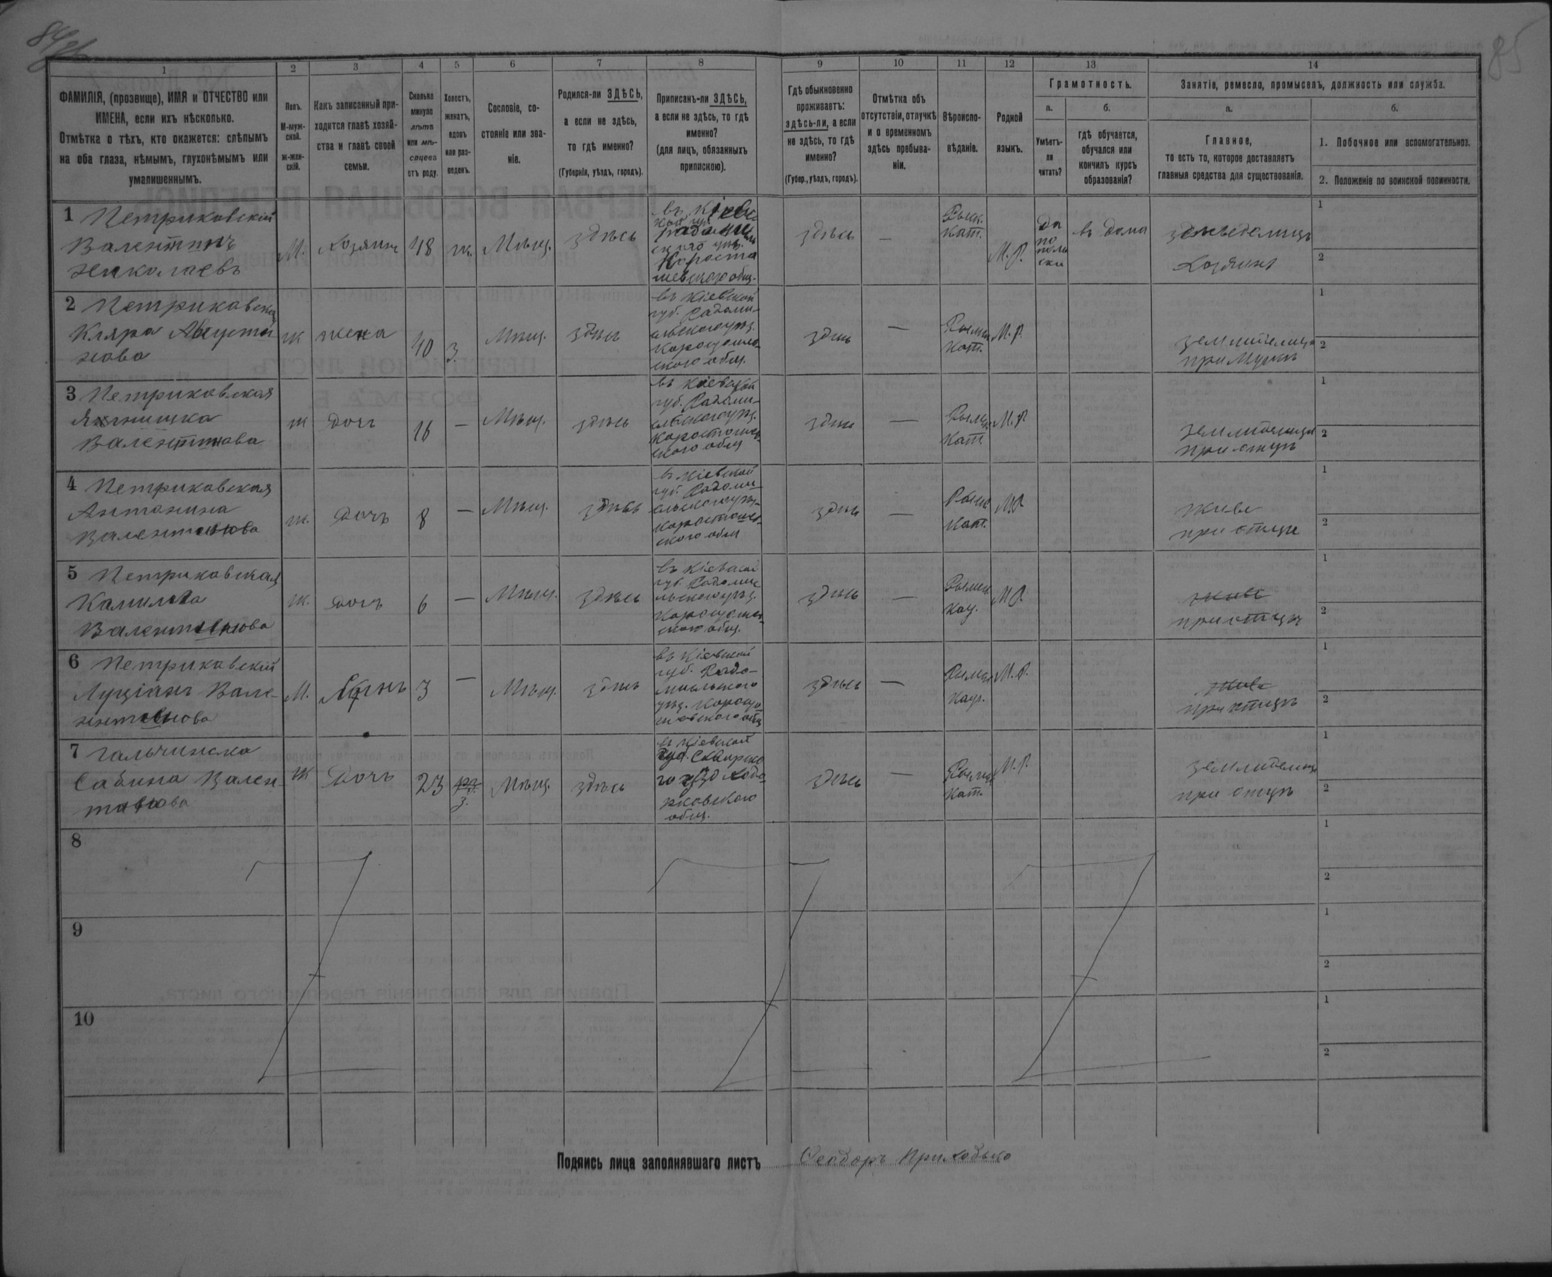 85
1
2
3
4
5
6
7
8
9
10
11
12
13
14
ФАМИЛІЯ, (прозвище), ИМЯ и ОТЧЕСТВО или
ИМЕНА, если ихъ нѣсколько.
Отмѣтка о тѣхъ, кто окажется: слѣпымъ
на оба глаза, нѣмымъ, глухонѣмымъ или
умалишеннымъ.
Полъ.
М-муж-
ской.
ж-жен-
скій.
Какъ записанный при-
ходится главѣ хозяй-
ства и главѣ своей
семьи.
Сколько
минуло
лѣтъ
или мѣ-
сяцевъ
отъ роду.
Холостъ,
женатъ,
вдовъ
или раз-
веденъ.
Сословіе, со-
стояніе или зва-
ніе.
Родился-ли ЗДѢСЬ,
а если не здѣсь,
то гдѣ именно?
(Губернія, уѣздъ, городъ).
Приписанъ-ли ЗДѢСЬ,
а если не здѣсь, то гдѣ
именно?
(для лицъ, обязанныхъ
припискою).
Гдѣ обыкновенно
проживаетъ:
здѣсь-ли, а если
не здѣсь, то гдѣ
именно?
(Губер., уѣздъ, городъ).
Отмѣтка объ
отсутствіи, отлучкѣ
и о временномъ
здѣсь пребыва-
ніи.
Вѣроиспо-
вѣданіе.
Родной
языкъ.
Грамотность.
а.
б.
Умѣетъ-
ли
читать?
гдѣ обучается,
обучался или
кончилъ курсъ
образованія?
Занятіе, ремесло, промыселъ, должность или служба.
а.
б.
Главное,
то есть то, которое доставляетъ
главныя средства для существованія.
1. Побочное или вспомогательное.
2. Положеніе по воинской повинности.
1 Петриковскій
Валентинъ
Николаевъ
М.
хозяинъ
48
ж.
Мѣщ.
здѣсь
въ Кіев
Радомы
Короста
шевскаго общ.
здѣсь
—
Рым.
Кат.
М.Р.
да
по
поль
ски
въ дома
земледелецъ
хозяинъ
1
2
2 Петриковска
Кляра Августи
нова
ж
жена
40
з.
Мѣщ.
здѣсь
въ Кіевской
губ. Радоми
здѣсь
—
Рымск
Кат.
М.Р.
при мужѣ
1
2
3 Петриковская
Ягнишка
Валентинова
ж
дочь
16
—
Мѣщ.
здѣсь
въ Кіевской
губ. Радоми
здѣсь
—
Кат
М.Р.
при отцѣ
1
2
4 Петриковская
Антонина
Валентинова
ж.
дочь
8
—
Мѣщ.
здѣсь
въ Кіевской
губ. Радоми
ского общ
здѣсь
—
Рымск
Кат.
М.Р.
живе
при отцѣ
1
2
5 Петриковская
Камилла
Валентинова
ж.
дочь
6
—
Мѣщ.
здѣсь
въ Кіевской
губ. Радоми
ского общ.
здѣсь
—
Рымск
Кат.
М.Р.
живе
при отцѣ
1
2
6 Петриковскій
Луціанъ Вале
нтинова
М.
Сынъ
3
—
Мѣщ.
здѣсь
въ Кіевской
губ. Радо-
мысльского
здѣсь
—
Рымск
Кат.
М.Р.
живе
при отцѣ
1
2
7 Гальчинска
Сабина Вален
тинова
ж
Дочь
23
з.
Мѣщ.
здѣсь
въ Кіевской
губ. Сквирско
го уѣзд. Ходо-
рковского
общ.
здѣсь
—
Кат.
М.Р.
при отцѣ
1
2
8
1
2
9
1
2
10
1
2
Подпись лица заполнявшаго листъ Феодоръ Приходько